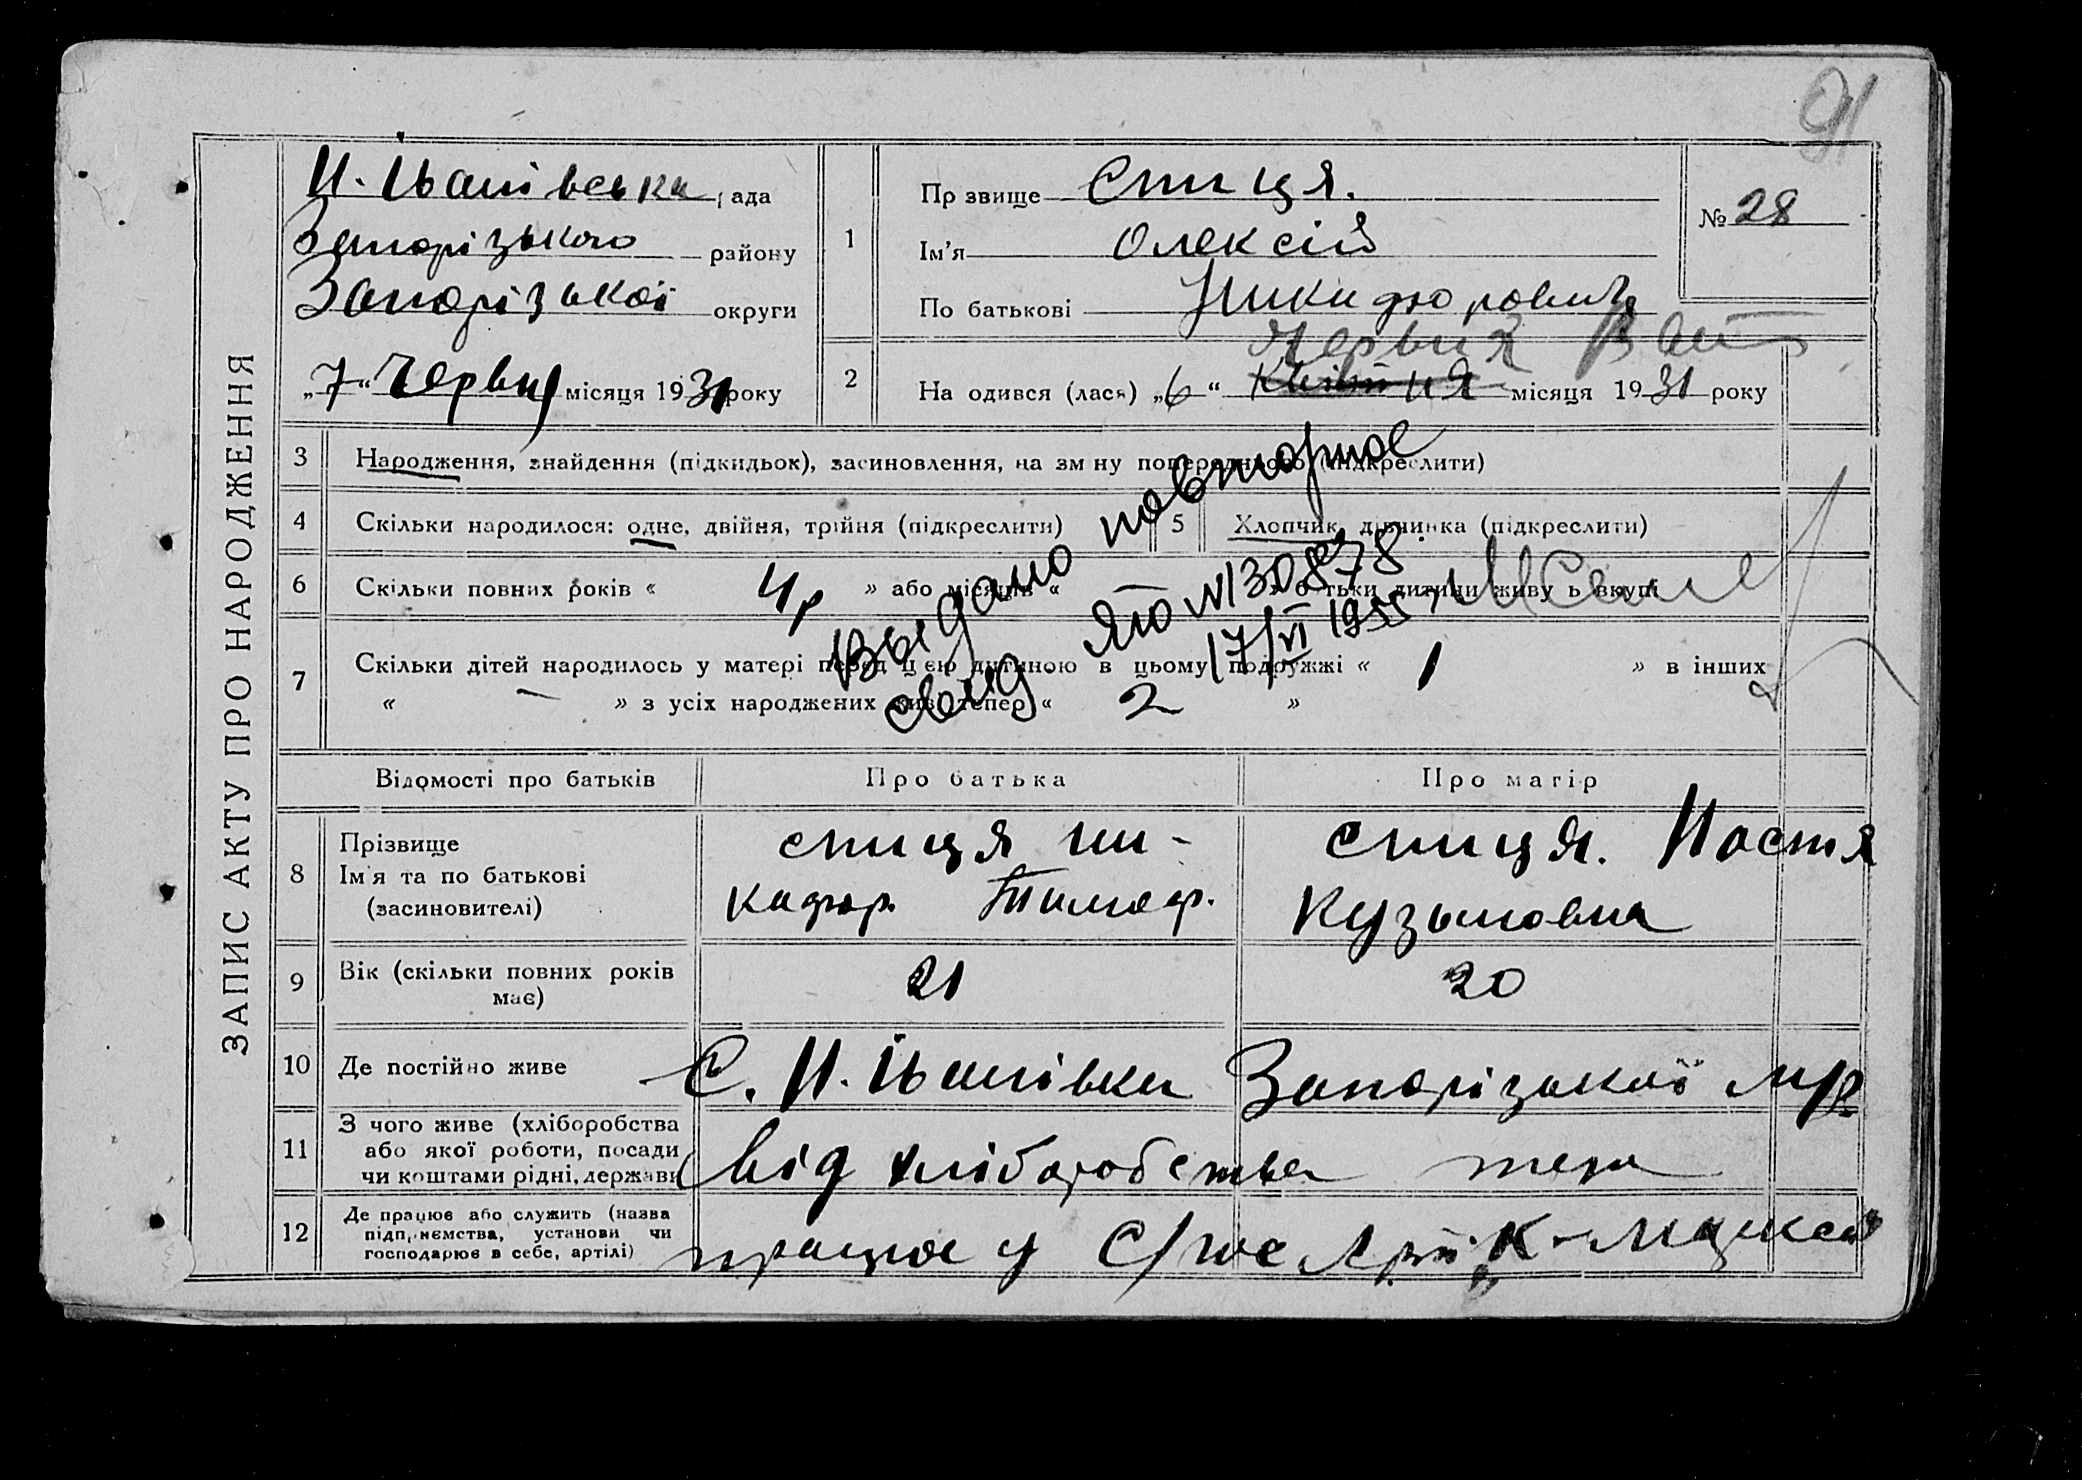 91
ЗАПИС АКТУ ПРО НАРОДЖЕННЯ
Н. Іванівська рада
Запорізького району
Запорізької округи
„7“ Червня місяця 1931 року
1
Прізвище Спиця.
Ім'я Олексій
По батькові Никифорович
№ 28
Червня
2
Народився (лася) „6“ Квітня місяця 1931 року
3 Народження, знайдення (підкидьок), засиновлення, на зміну попереднього (підкреслити)
4 Скільки народилося: одне, двійня, трійня (підкреслити) 5 Хлопчик, дівчинка (підкреслити)
6 Скільки повних років « 4р » або місяців « » батьки дитини живуть вкупі
7 Скільки дітей народилось у матері перед цією дитиною в цьому подружжі « 1 » в інших
« — » з усіх народжених живі тепер « 2 »
Выдано повторное
свид ЯЮ №130878
17/VI 1955
Відомості про батьків Про батька Про матір
8 Прізвище
Ім'я та по батькові
(засиновителі)
спиця ни-
кифор. Тимоф.
спиця. Настя
Кузьмовна
9 Вік (скільки повних років
має)
21 20
10 Де постійно живе С. Н. Іванівка Запорізької м/р.
11 З чого живе (хліборобства
або якої роботи, посади
чи коштами рідні, держави
від хліборобства теж
12 Де працює або служить (назва
підприємства, установи чи
господарює в себе, артілі)
працює у с/гос Арт. К-Маркса